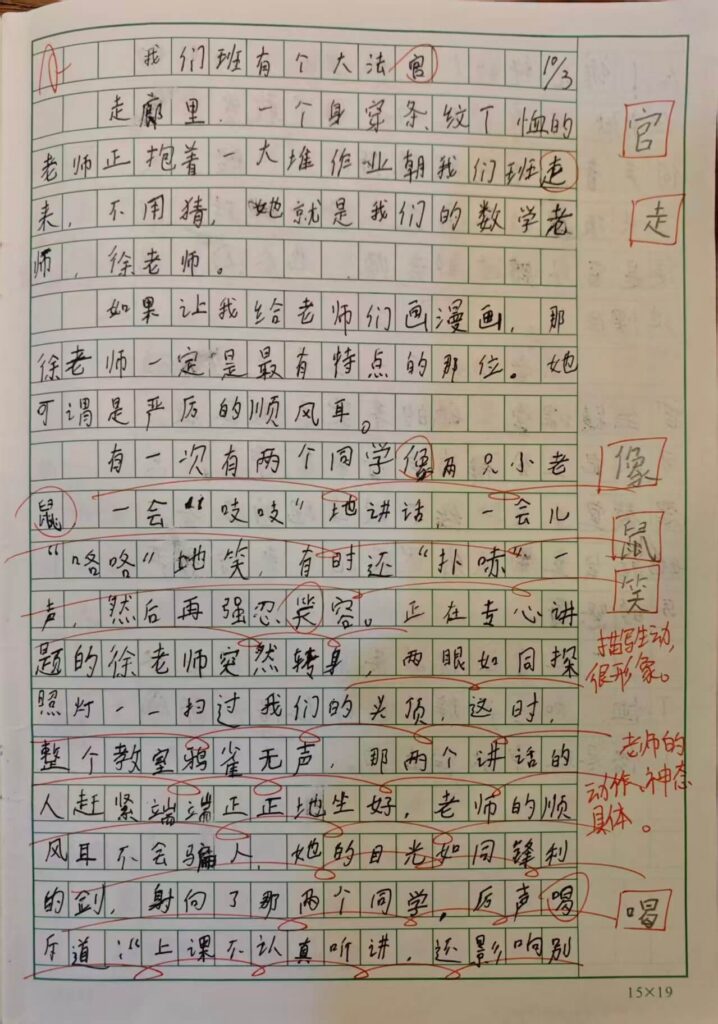 A- 我们班有个大法官 10/3
走廊里，一个身穿条纹T恤的 官
老师正抱着一大堆作业朝我们班走 走
来，不用猜，她就是我们的数学老
师，徐老师。
如果让我给老师们画漫画，那
徐老师一定是最有特点的那位。她
可谓是严厉的顺风耳。
有一次有两个同学像两只小老 像
鼠，一会“吱吱”地讲话，一会儿 鼠
“咯咯”地笑，有时还“扑哧”一 笑
声，然后再强忍笑容。正在专心讲
题的徐老师突然转身，两眼如同探 描写生动，很形象。
照灯一一扫过我们的头顶，这时，
整个教室鸦雀无声，那两个讲话的 老师的
人赶紧端端正正地坐好，老师的顺 动作、神态
风耳不会骗人，她的目光如同锋利 具体。
的剑，射向了那两个同学，厉声喝 喝
斥道：“上课不认真听讲，还影响别
15×19